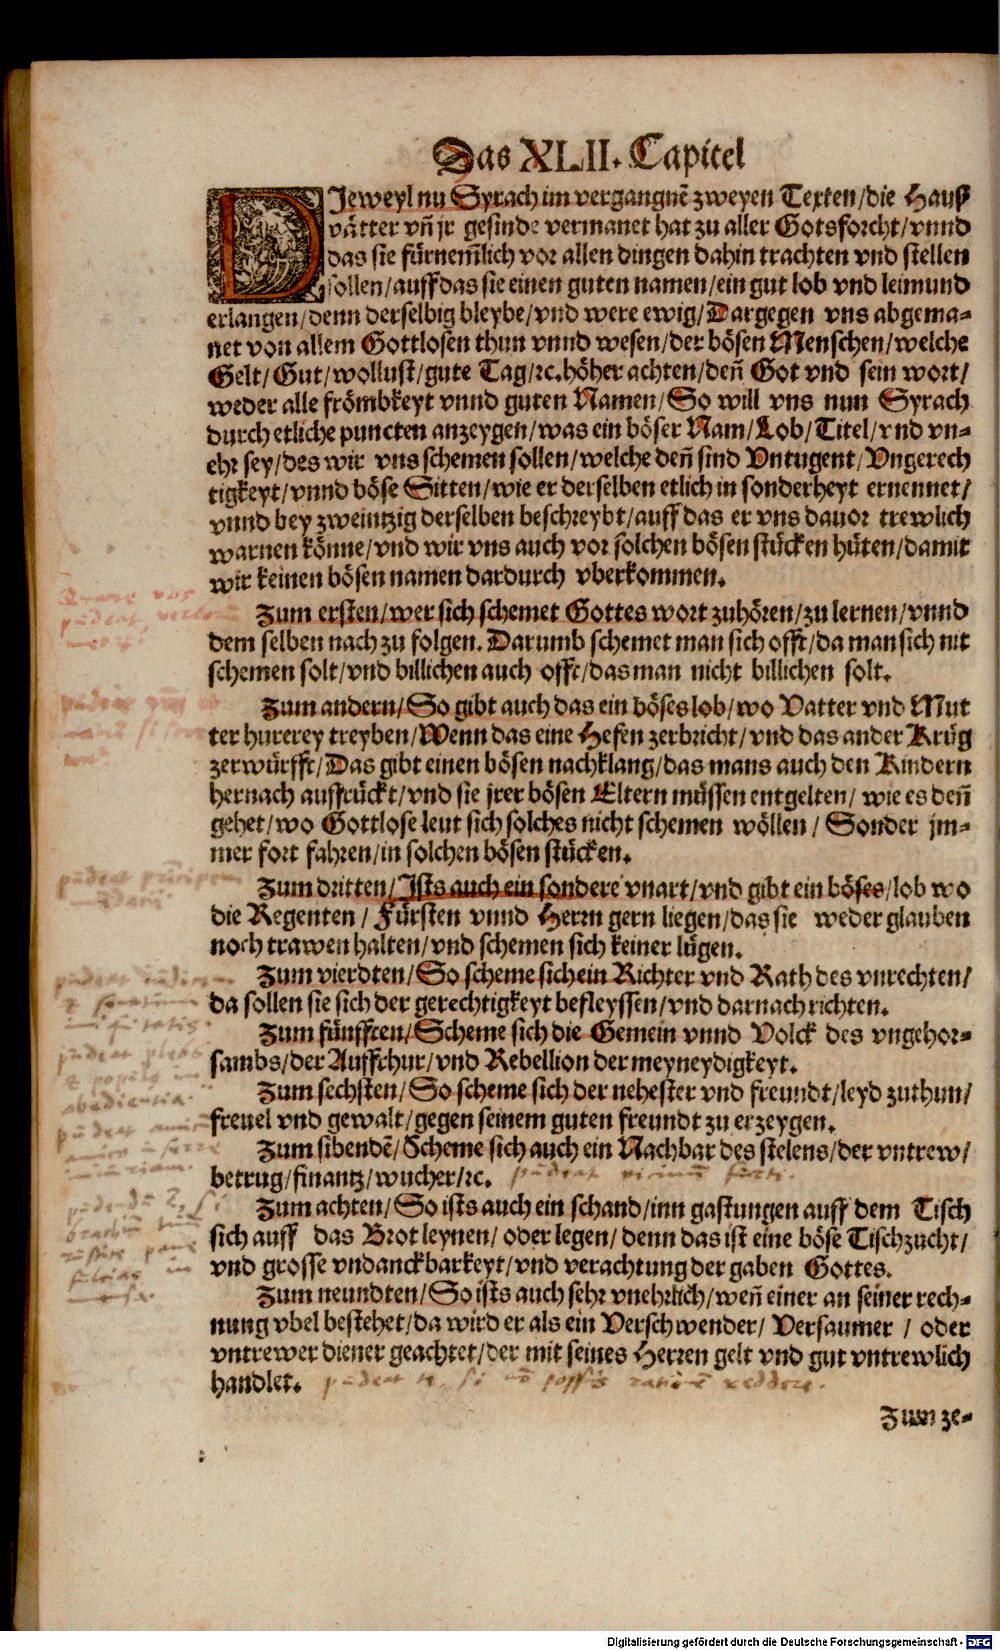 Das XLII. Capitel
DJeweyl nu Syrach im vergangnẽ zweyen Texten/die Hauß
vätter vñ jr gesinde vermanet hat zu aller Gotsforcht/vnnd
das sie fürnem̃lich vor allen dingen dahin trachten vnd stellen
sollen/auff das sie einen guten namen/ein gut lob vnd leimund
erlangen/denn derselbig bleybe/vnd were ewig/Dargegen vns abgema-
net von allem Gottlosen thun vnnd wesen/der bösen Menschen/welche
Gelt/Gut/wollust/gute Tag/ꝛc.höher achten/deñ Got vnd sein wort/
weder alle frömbkeyt vnnd guten Namen/So will vns nun Syrach
durch etliche puncten anzeygen/was ein böser Nam/Lob/Titel/vnd vn-
ehr sey/des wir vns schemen sollen/welche deñ sind Vntugent/Vngerech
tigkeyt/vnnd böse Sitten/wie er derselben etlich in sonderheyt ernennet/
vnnd bey zweintzig derselben beschreybt/auff das er vns dauor trewlich
warnen könne/vnd wir vns auch vor solchen bösen stücken hüten/damit
wir keinen bösen namen dardurch vberkommen.
Zum ersten/wer sich schemet Gottes wort zuhören/zu lernen/vnnd
dem selben nach zu folgen. Darumb schemet man sich offt/da man sich nit
schemen solt/vnd billichen auch offt/das man nicht billichen solt.
Zum andern/So gibt auch das ein böses lob/wo Vatter vnd Mut
ter hurerey treyben/Wenn das eine Hefen zerbricht/vnd das ander Krüg
zerwürfft/Das gibt einen bösen nachklang/das mans auch den Kindern
hernach auffrückt/vnd sie jrer bösen Eltern müssen entgelten/ wie es deñ
gehet/wo Gottlose leut sich solches nicht schemen wöllen/ Sonder jm-
mer fort fahren/in solchen bösen stücken.
Zum dritten/Jsts auch ein sondere vnart/vnd gibt ein böses/lob wo
die Regenten/ Fürsten vnnd Herrn gern liegen/das sie weder glauben
noch trawen halten/vnd schemen sich keiner lügen.
Zum vierdten/So scheme sich ein Richter vnd Rath des vnrechten/
da sollen sie sich der gerechtigkeyt befleyssen/vnd darnach richten.
Zum fünfften/Scheme sich die Gemein vnnd Volck des vngehor-
sambs/der Auffrhur/vnd Rebellion der meyneydigkeyt.
Zum sechsten/So scheme sich der nehester vnd freundt/leyd zuthun/
freuel vnd gewalt/gegen seinem guten freundt zu erzeygen.
Zum sibendẽ/Scheme sich auch ein Nachbar des stelens/der vntrew/
betrug/finantz/wucher/ꝛc. pudeat vicinum furti.
Zum achten/So ists auch ein schand/inn gastungen auff dem Tisch
sich auff das Brot leynen/ oder legen/ denn das ist eine böse Tischzucht/
vnd grosse vndanckbarkeyt/vnd verachtung der gaben Gottes.
Zum neundten/So ists auch sehr vnehrlich/weñ einer an seiner rech-
nung vbel bestehet/da wird er als ein Verschwender/ Versaumer / oder
vntrewer diener geachtet/der mit seines Herren gelt vnd gut vntrewlich
handlet. pudeat te, si nõ possis rationẽ reddere.
Zum ze-
Digitalisierung gefördert durch die Deutsche Forschungsgemeinschaft - DFG